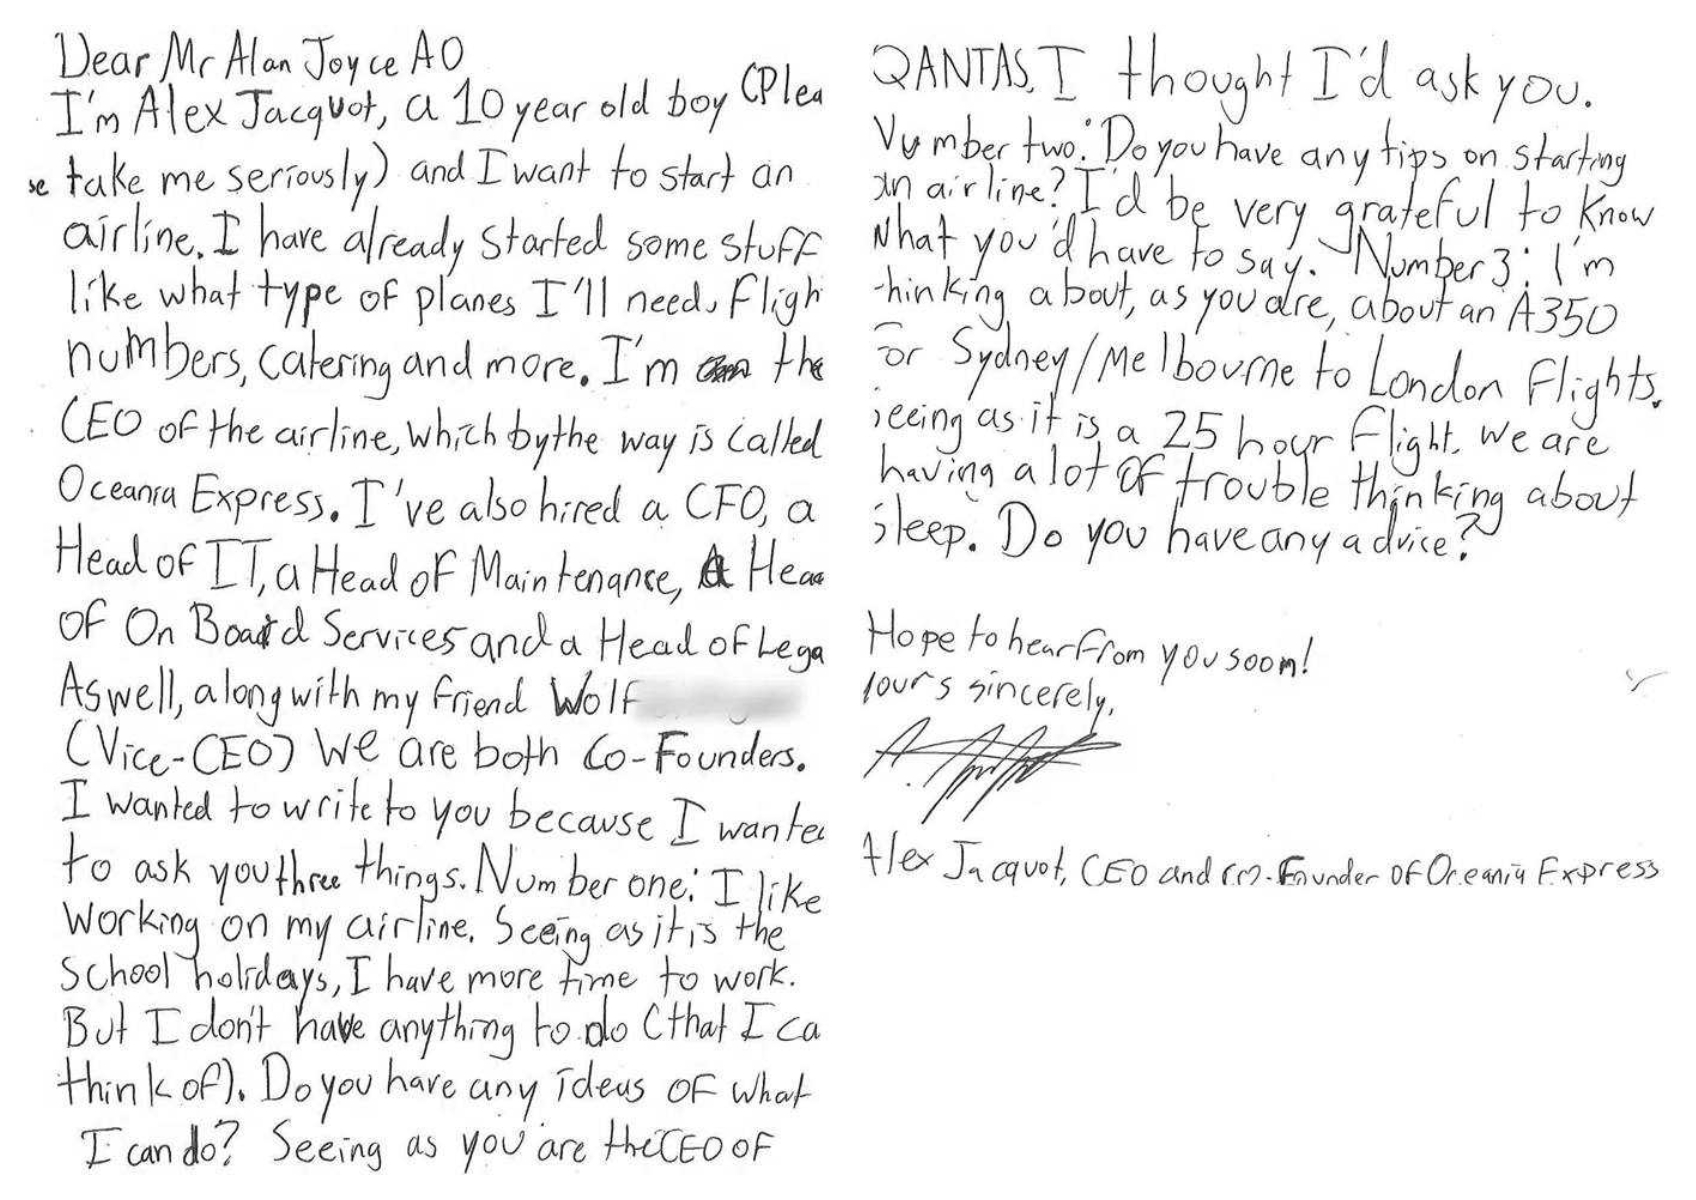 Dear Mr Alan Joyce AO
I'm Alex Jacquot, a 10 year old boy (Plea
se take me seriously) and I want to start an
airline. I have already started some stuff
like what type of planes I'll need, fligh
numbers, catering and more. I'm the
CEO of the airline, which by the way is called
Oceania Express. I've also hired a CFO, a
Head of IT, a Head of Maintenance, A Hea
of On Board Services and a Head of Lega
Aswell, along with my friend Wolf
(Vice-CEO) We are both Co-Founders.
I wanted to write to you because I wante
to ask you three things. Number one: I like
Working on my airline. Seeing as it is the
School holidays, I have more time to work.
But I don't have anything to do (that I ca
think of). Do you have any ideas of what
I can do? Seeing as you are the CEO OF
QANTAS, I thought I'd ask you.
Number two: Do you have any tips on starting
an airline? I'd be very grateful to know
what you'd have to say. Number 3: I'm
hinking about, as you are, about an A350
or Sydney/Melbourne to London flights.
seeing as it is a 25 hour flight. We are
having a lot of trouble thinking about
sleep. Do you have any advice?
Hope to hear from you soon!
Yours sincerely,
Alex Jacquot, CEO and co-Founder of Oceania Express